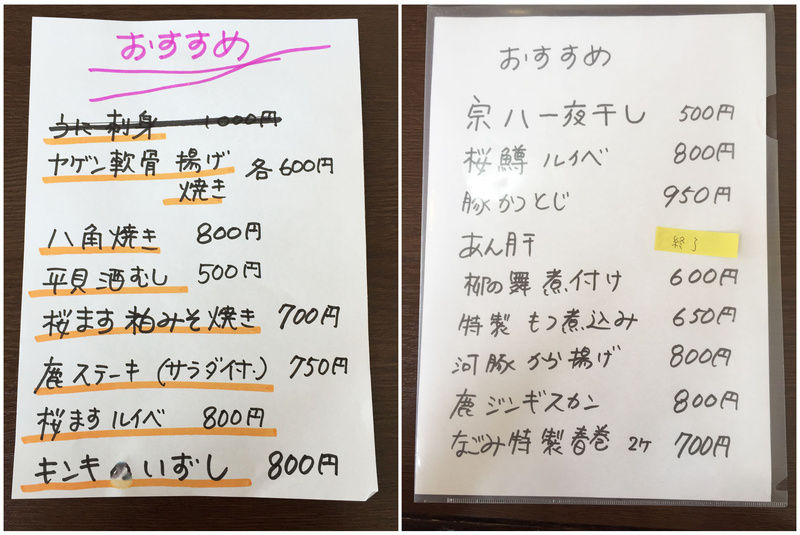 おすすめ
うに刺身 1000円
ヤゲン軟骨 揚げ 各600円
焼き
八角焼き 800円
平貝酒むし 500円
桜ます粕みそ焼き 700円
鹿ステーキ(サラダ付.) 750円
桜ますルイベ 800円
キンキのいずし 800円
おすすめ
宗八一夜干し 500円
桜鱒ルイベ 800円
豚かつとじ 950円
あん肝 終了
柳の舞煮付け 600円
特製もつ煮込み 650円
河豚から揚げ 800円
鹿ジンギスカン 800円
なごみ特製春巻 2ケ 700円